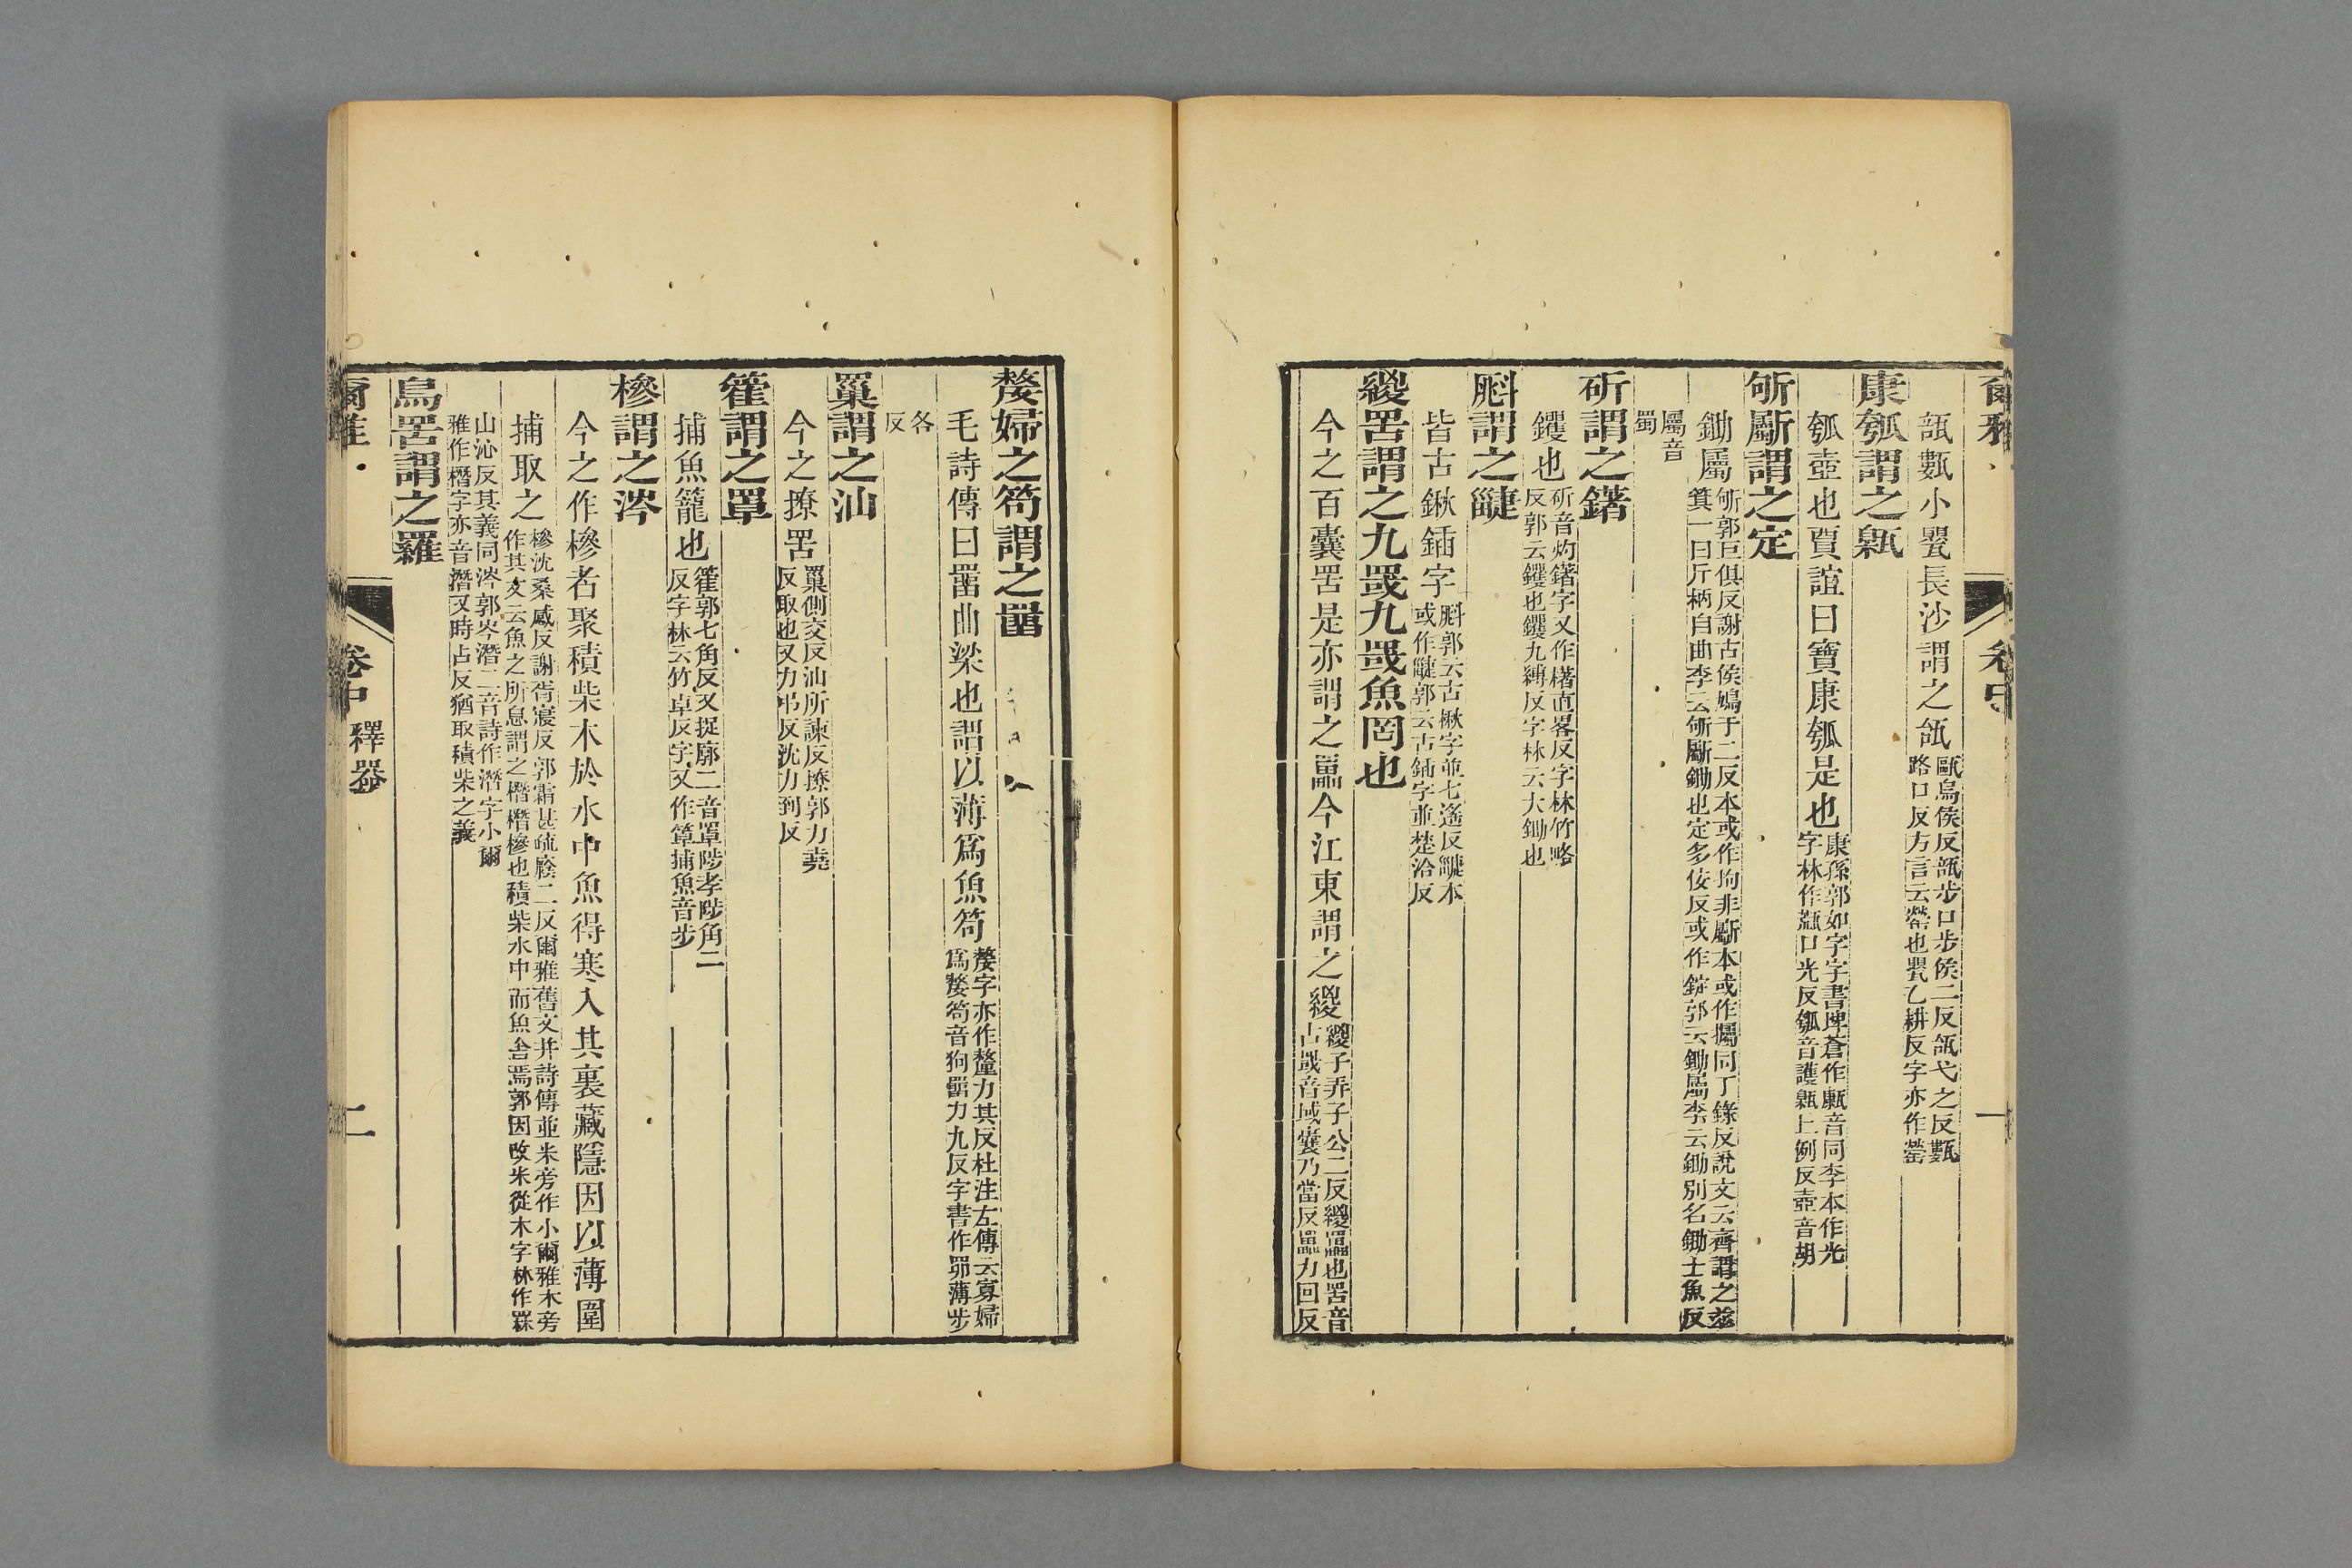 爾雅
卷中
一
瓿甊小甖長沙謂之瓵甌烏侯反瓿步口步侯二反瓵弋之反甊
路口反方言云罃也甖乙耕反字亦作罃
康瓠謂之甈
瓠壺也賈誼曰寶康瓠是也康孫郭如字字書埤蒼作甉音同李本作光
字林作瓠口光反瓠音護甈上例反壺音胡
斪斸謂之定
鋤屬斪郭巨俱反謝古侯鳩于二反本或作拘非斸本或作钃同丁錄反說文云齊謂之茲
箕一曰斤柄自曲李云斪斸鋤也定多佞反或作錠郭云鋤屬李云鋤別名鋤士魚反
屬音
蜀
斫謂之鐯
钁也斫音灼鐯字又作櫡直畧反字林竹略
反郭云钁也钁九縛反字林云大鋤也
斛謂之疀
皆古鍬鍤字斛郭云古鍬字並七遙反疀本
或作疀郭云古鍤字並楚洽反
緵罟謂之九罭九罭魚罔也
今之百囊罟是亦謂之䍡今江東謂之緵緵子弄子公二反緵䍡也罟音
古罭音域囊乃當反䍡力回反
嫠婦之笱謂之罶
毛詩傳曰罶曲梁也謂以薄爲魚笱嫠字亦作釐力其反杜注左傳云寡婦
爲嫠笱音狗罶力九反字書作罶薄步
各
反
罺謂之汕
今之撩罟罺側交反汕所諫反撩郭力堯
反取也又力弔反沈力到反
篧謂之罩
捕魚籠也篧郭七角反又捉廓二音罩陟孝陟角二
反字林云竹卓反字又作䈇捕魚音步
槮謂之涔
今之作槮者聚積柴木於水中魚得寒入其裏藏隱因以薄圍
捕取之槮沈桑感反謝胥寑反郭霜甚疏廕二反爾雅舊文并詩傳並米旁作小爾雅木旁
作其文云魚之所息謂之橬橬槮也積柴水中而魚舍焉郭因改米從木字林作罧
山沁反其義同涔郭岑潛二音詩作潛字小爾
雅作橬字亦音潛又時占反猶取積柴之義
鳥罟謂之羅
爾雅
卷中
釋器
二